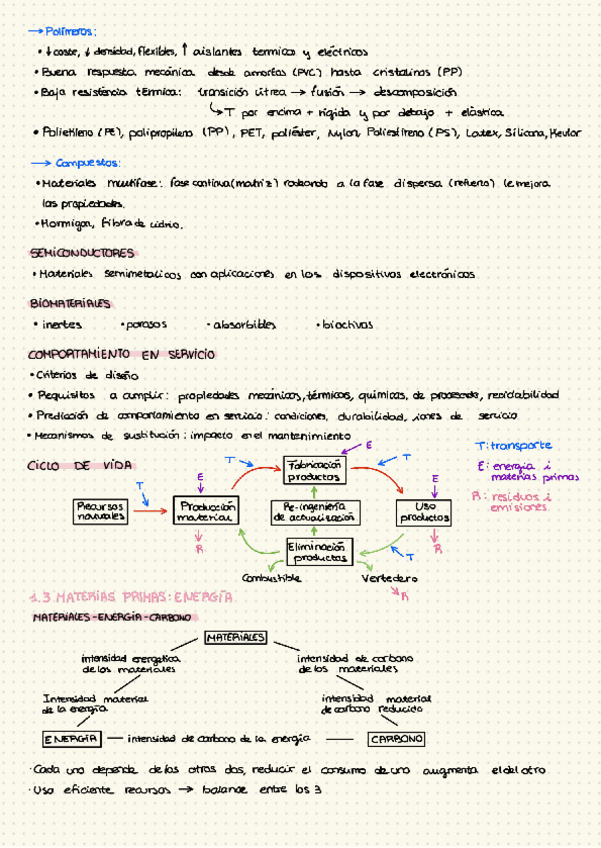 → Polímeros:
• ↓coste, ↓densidad, flexibles, ↑ aislantes termicos y eléctricos
• Buena respuesta mecánica desde amorfos (PVC) hasta cristalinos (PP)
• Baja resistencia térmica: transición vítrea → fusión → descomposición
↳ T por encima + rígida y por debajo + elástica
• Polietileno (PE), polipropileno (PP), PET, poliéster, Nylon, Poliestireno (PS), Latex, Silicona, Kevlar
→ Compuestos:
• Materiales multifase: fase continua (matriz) rodeando a la fase dispersa (refuerzo) le mejora
las propiedades.
• Hormigon, fibra de vidrio.
SEMICONDUCTORES
• Materiales semimetalicos con aplicaciones en los dispositivos electrónicos
BIOMATERIALES
• inertes • porosos • absorbibles • bioactivos
COMPORTAMIENTO EN SERVICIO
• Criterios de diseño
• Requisitos a cumplir: propiedades mecánicas, térmicas, químicas, de procesado, reciclabilidad
• Predicción de comportamiento en servicio: condiciones, durabilidad, iones de servicio
• Mecanismos de sustitución: impacto en el mantenimiento
CICLO DE VIDA
T: transporte
E: energía i
materias primas
R: residuos i
emisiones.
T
E
Fabricación
productos
T
T
E
E
Recursos
naturales
Producción
material
Re-ingeniería
de actualización
Uso
productos
R
R
Eliminación
productos
T
Combustible
Vertedero
R
1.3 MATERIAS PRIMAS: ENERGÍA
MATERIALES-ENERGÍA-CARBONO
MATERIALES
intensidad energética
de los materiales
intensidad de carbono
de los materiales
Intensidad material
de la energía
intensidad material
de carbono reducido
ENERGÍA — intensidad de carbono de la energía — CARBONO
· Cada uno depende de los otros dos, reducir el consumo de uno augmenta el del otro
· Uso eficiente recursos → balance entre los 3